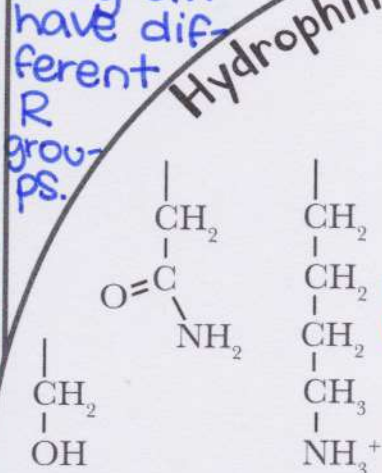 have dif-
ferent
R
grou-
ps.
Hydrophili
CH₂
O=C
NH₂
CH₂
CH₂
CH₂
CH₃
NH₃⁺
CH₂
OH